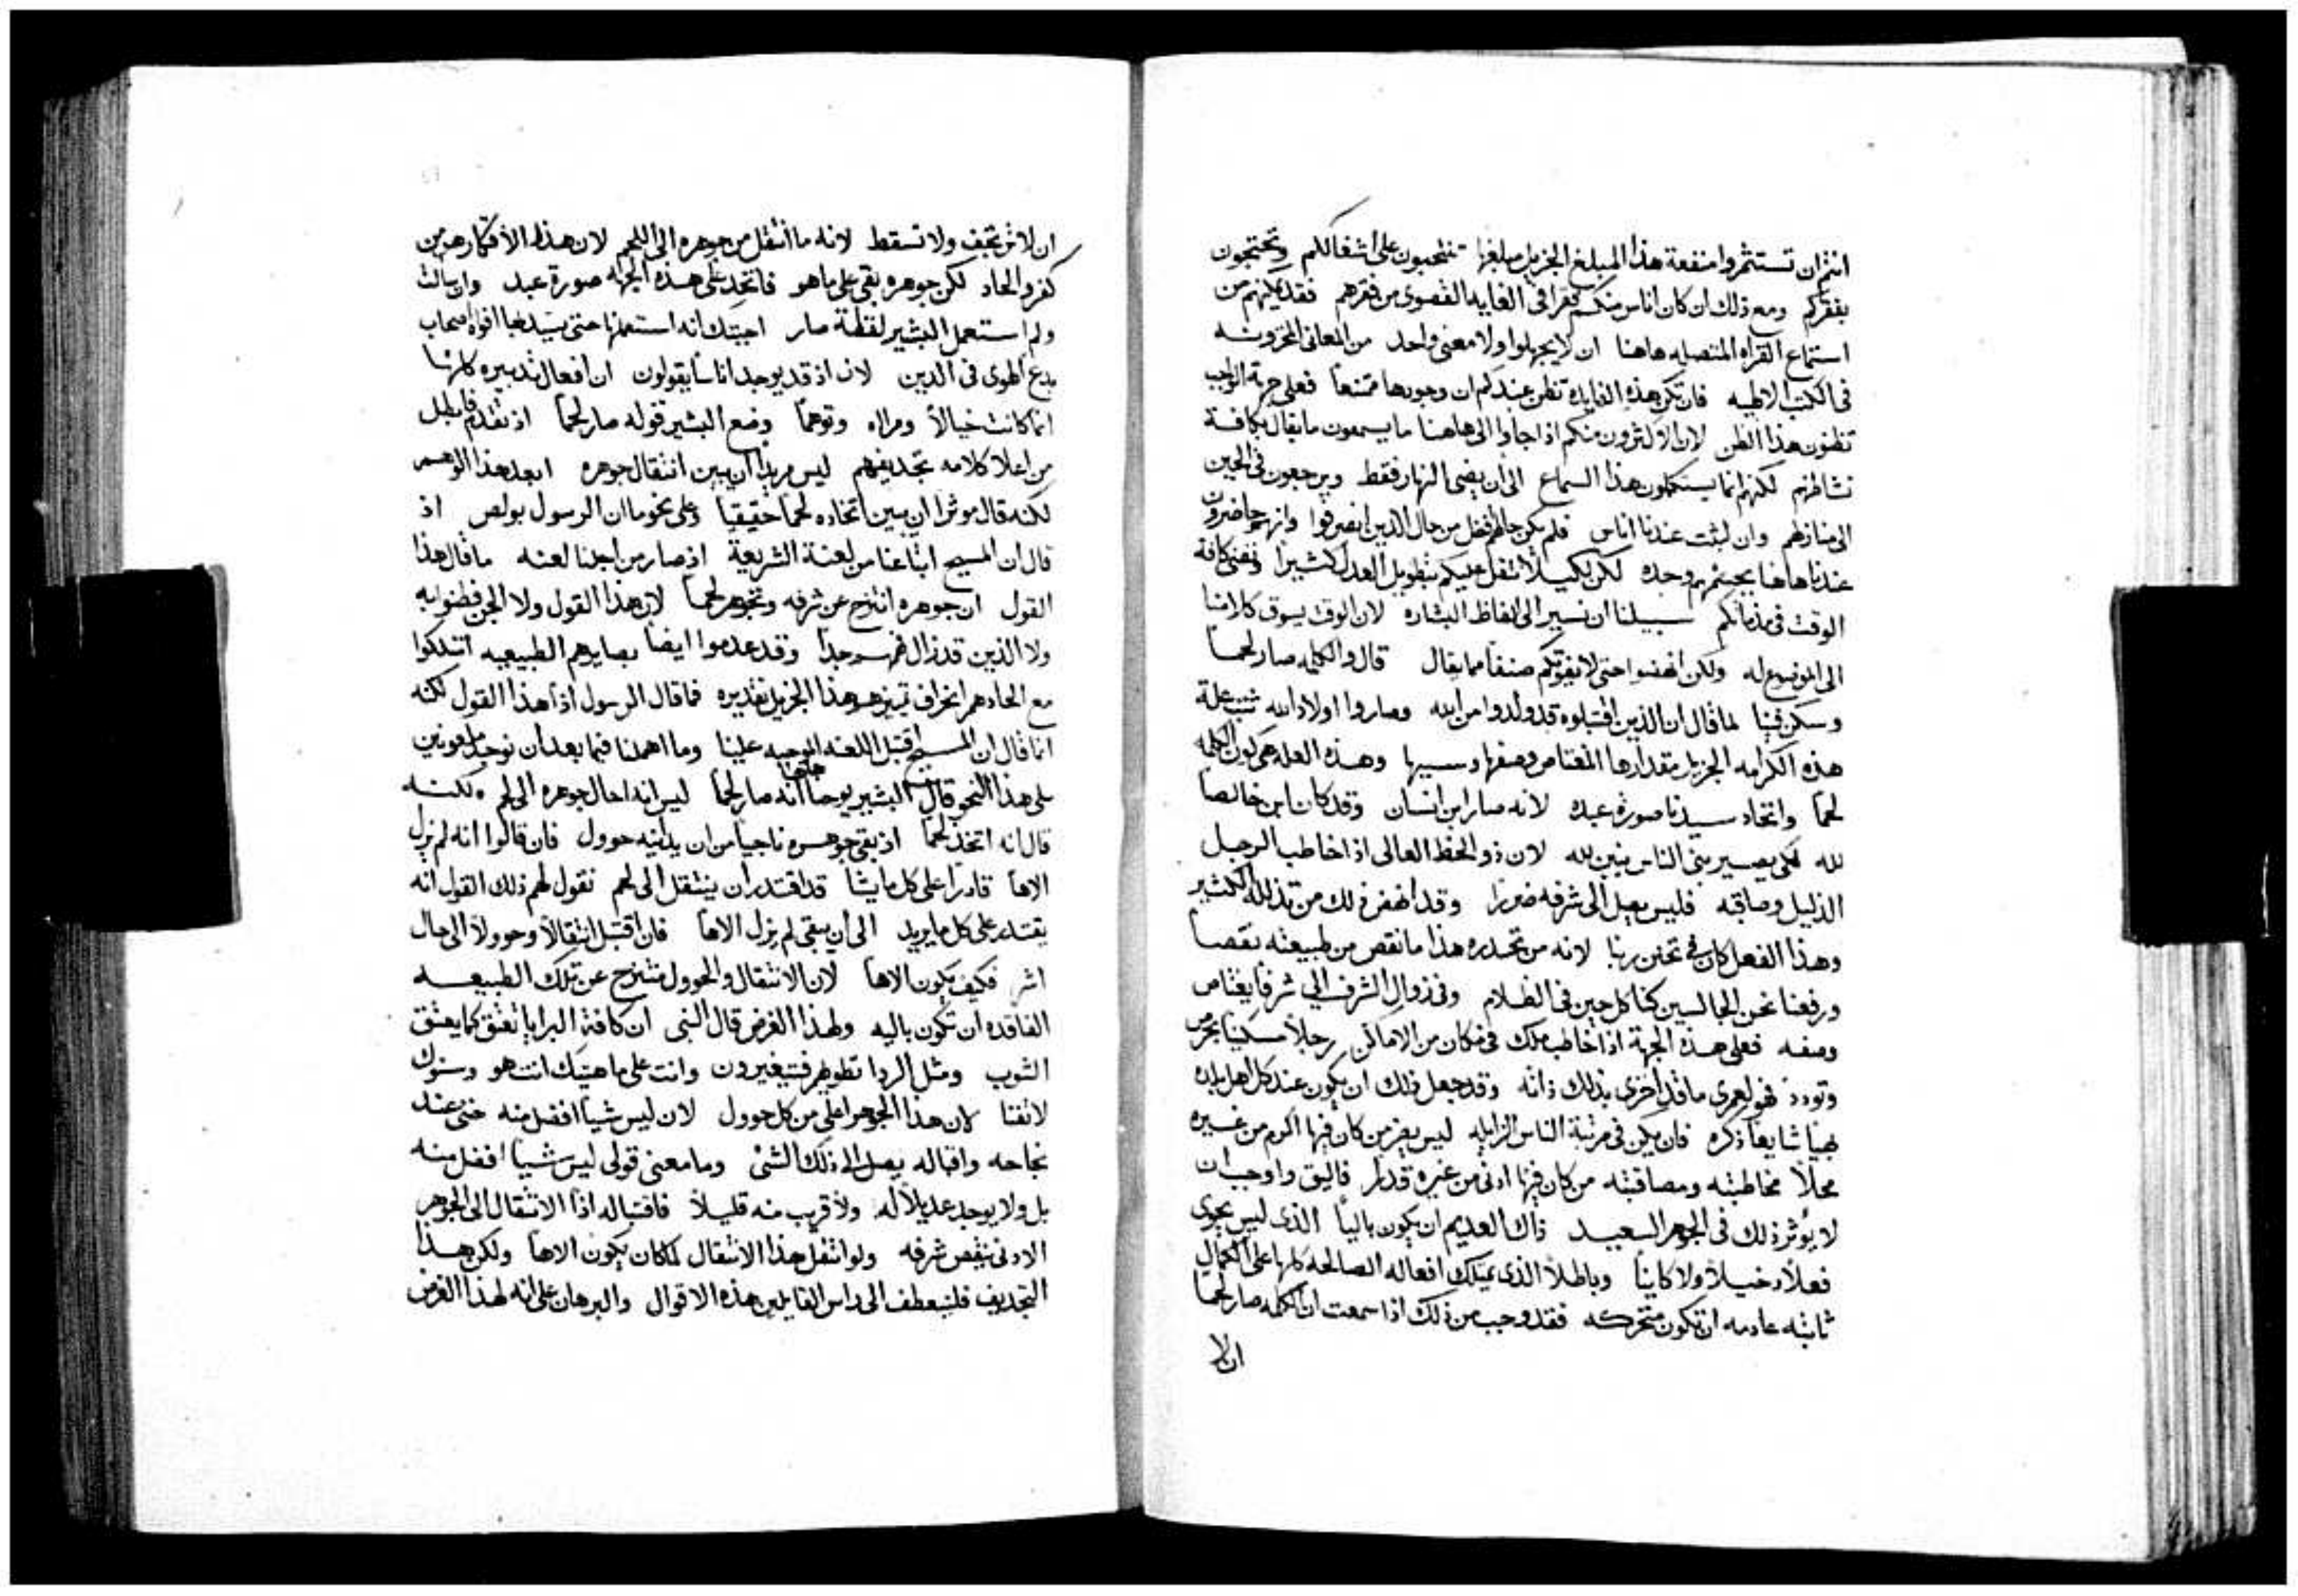 انتم ان تستثمروا منفعة هذا المبلغ الجزيل مبلغها تنتحبون على اشغالكم وتحتجون
بفقركم ومع ذلك ان كان اناس منكم فقرا في الغايه القصوى من فقرهم فقد يمكنهم من
استماع القراه المتصله هاهنا ان لا يجهلوا ولا معنى واحد من المعاني المخزونه
في الكتب الالهيه فان تكن هذه الفايده تظن عندكم ان وجودها ممتنعاً فعلى جهة الواجب
تظنون هذا الظن لان الاكثرون منكم اذا جاوا الى هاهنا ما يسمعون ما يقال بكافة
نشاطهم لكنهم انما يستكملون هذا السماع الى ان يمضى النهار فقط ويرجعون في الحين
الى منازلهم وان لبثت عندنا اناس فلم يكن حالهم افضل من حال الذين انصرفوا وانهم حاضرون
عندنا هاهنا بجسمهم وحده لكن لكيلا نثقل عليكم بتطويل العدل كثيراً ونفنى كافة
الوقت في مذماتكم سبيلنا ان نسير الى الفاظ البشاره لان الوقت يسوق كلامنا
الى الموضوع له ولكن انهضوا حتى لا يفوتكم صنفاً مما يقال قال والكلمه صار لحماً
وسكن فينا لما قال ان الذين اقتبلوه قد ولدوا من الله وصاروا اولاد الله ثبت علة
هذه الكرامه الجزيل مقدارها المعتاص وصفها وسببها وهذه العله هي كون الكلمه
لحماً واتخاد سيدنا صورة عبده لانه صار ابن انسان وقد كان ابن خالصاً
لله لكى يصير بنى الناس بنين لله لان ذو الحظ العالى اذا خاطب الرجل
الذليل وصاقبه فليس يصل الى شرفه ضرراً وقد انهض ذلك من تذلله الكثير
وهذا الفعل كان في تحنن ربنا لانه من تحدره هذا ما نقص من طبيعته نقصاً
ورفعنا نحن الجالسين كنا كل حين في الظلام وفي زوال الشرف الى شرفاً يعتاص
وصفه فعلى هذه الجهة اذا خاطب ملك في مكان من الاماكن رجلاً مسكيناً بحرص
وتودد فهو لعمرى ما قد اخزى بذلك ذاته وقد جعل ذلك ان يكون عند كل اهل بلده
بهياً شايعاً ذكره فان يكن في مرتبة الناس الزايله ليس يضر من كان فيها اكرم من غيره
محلاً مخاطبته ومصاقبته من كان فيها ادنى من غيره قدراً فاليق واوجب ان
لا يوثر ذلك في الجوهر السعيد ذاك العديم ان يكون بالياً الذى ليس يحوى
فعلاً دخيلاً ولا كايناً وباطلاً الذى يمتلك افعاله الصالحه كلها على الكمال
ثابته عادمه ان تكون متحركه فقد وجب من ذلك اذا سمعت ان الكلمه صار لحماً
ان لا
ان لا ترتجف ولا تسقط لانه ما انتقل من جوهره الى اللحم لان هذا الافتكار هو من
كفر والحاد لكن جوهره بقي على ما هو فاتخد على هذه الجهه صورة عبد وان سالت
ولم استعمل البشير لفظة صار اجبتك انه استعملها حتى يسد بها افواه اصحاب
بدع الهوى في الدين لان اذ قد يوجد اناساً يقولون ان افعال تدبيره كلها
انما كانت خيالاً ومراه وتوهماً وضع البشير قوله صار لحماً اذ تقدم فابطل
من اعلا كلامه تجديفهم ليس مريداً ان يبين انتقال جوهره ابعد هذا الوهم
لكنه قال موثراً ان يبين اتخاده لحماً حقيقياً وعلى نحو ما ان الرسول بولص اذ
قال ان المسيح ابتاعنا من لعنة الشريعة اذ صار من اجلنا لعنه ما قال هذا
القول ان جوهره انتزح عن شرفه وتجوهر لحماً لان هذا القول ولا الجن فطنوا به
ولا الذين قد زال فهمهم جداً وقد عدموا ايضاً بصايرهم الطبيعيه امتلكوا
مع الحادهم انحراف تمييزهم هذا الجزيل تقديره فما قال الرسول اذاً هذا القول لكنه
انما قال ان المسيح اقتبل اللعنه الموجبه علينا وما اهملنا فيما بعد ان نوجد ملعونين
على هذا النحو قال البشير يوحنا هاهنا انه صار لحماً ليس انه احال جوهره الى لحم ولكنه
قال انه اتخذ لحماً اذ بقي جوهره ناجياً من ان يدانيه حوول فان قالوا انه لم يزل
الاهاً قادراً على كل ما يشا قد اقتدر ان ينتقل الى لحم نقول لهم ذلك القول انه
يقتدر على كل ما يريد الى ان يبقى لم يزل الاهاً فان اقتبل انتقالاً وحوولاً الى حال
اشر فكيف يكون الاهاً لان الانتقال والحوول منتزح عن تلك الطبيعه
الفاقده ان تكون باليه ولهذا الغرض قال النبى ان كافة البرايا تعتق كما يعتق
الثوب ومثل الردا تطويهم فيتغيرون وانت على ما هيتك انت هو وسنوك
لا تفنا لان هذا الجوهر اعلى من كل حوول لان ليس شياً افضل منه حتى عند
نجاحه واقباله يصل الى ذلك الشئ وما معنى قولى ليس شياً افضل منه
بل ولا يوجد عديلاً له ولا قريب منه قليلاً فاقتباله اذاً الانتقال الى الجوهر
الادنى ينقص شرفه ولو انتقل هذا الانتقال لما كان يكون الاهاً ولكن هذا
التجديف فلينعطف الى راس القايلين هذه الاقوال والبرهان على انه لهذا الغرض